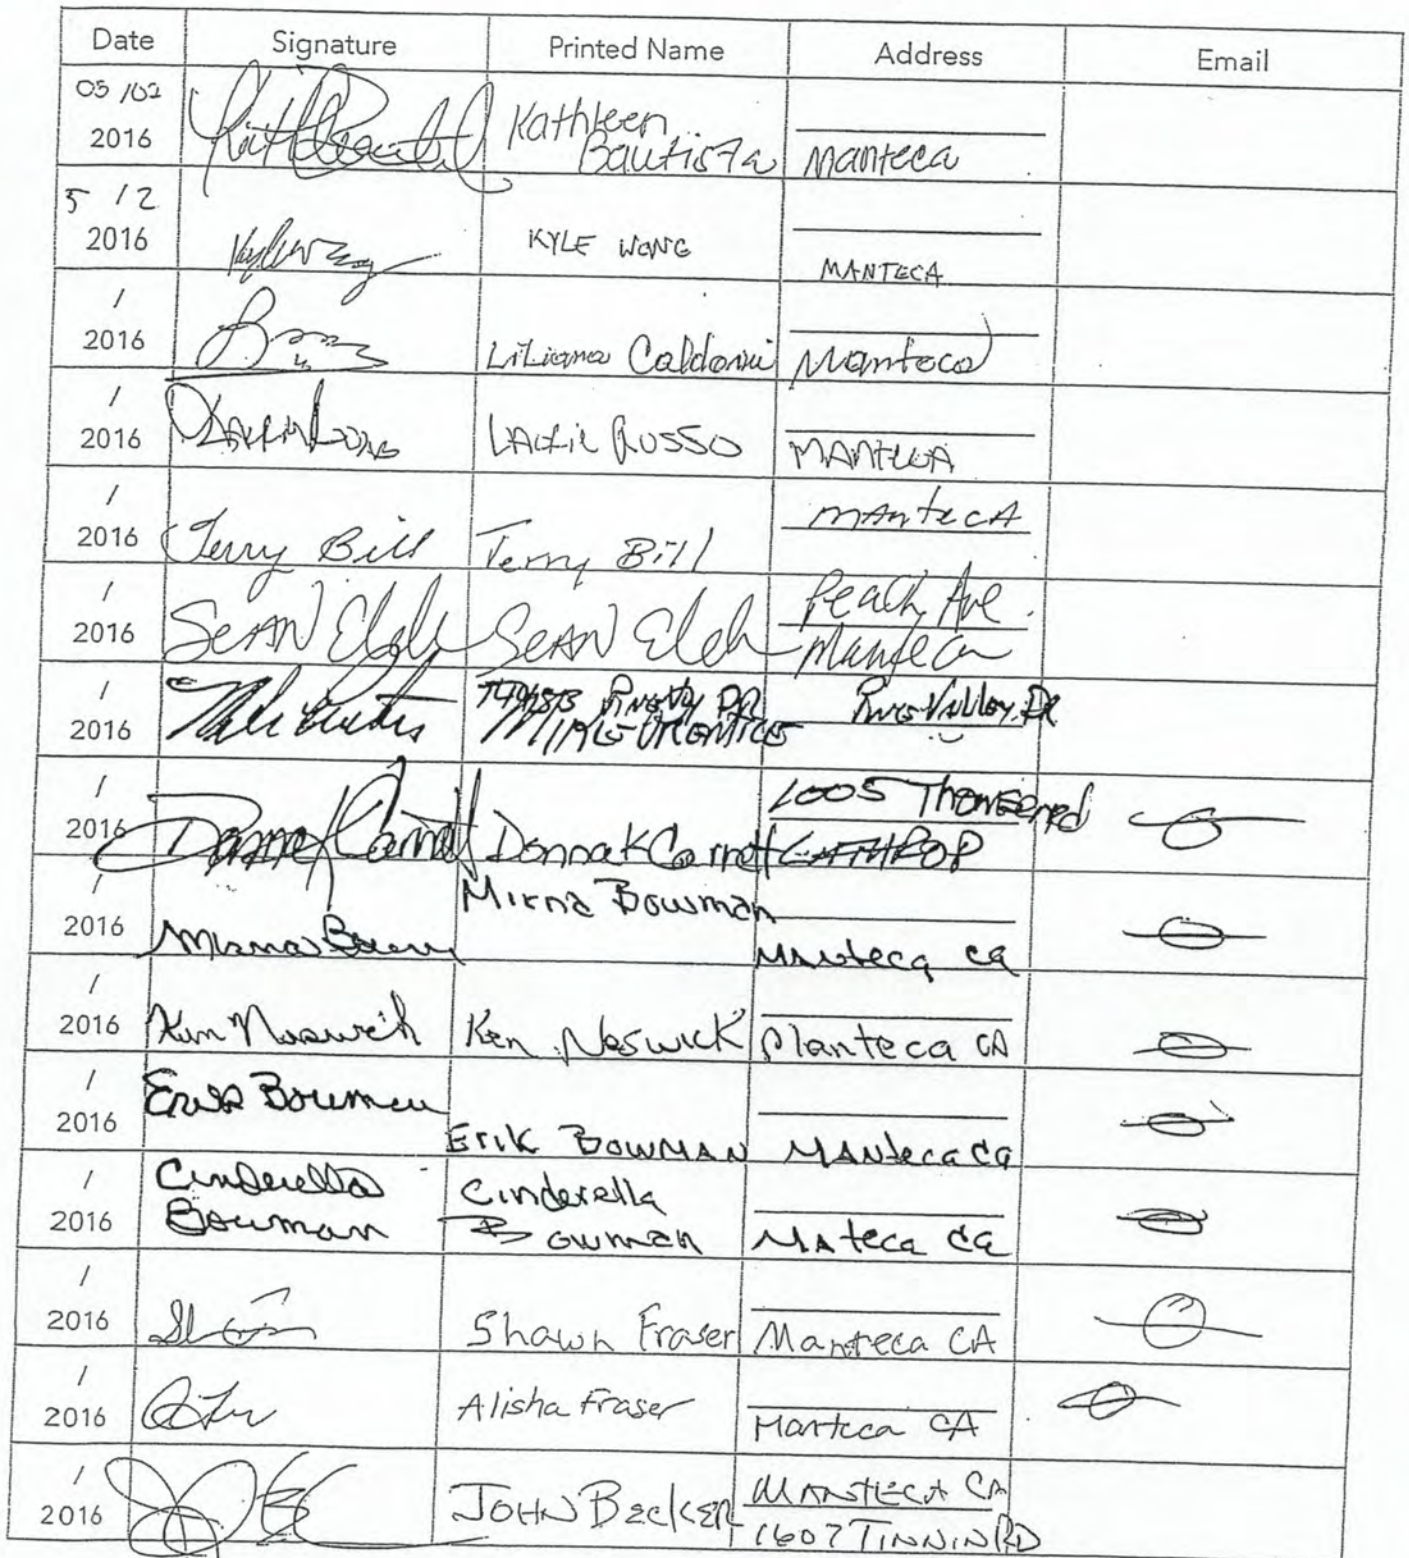 Date Signature Printed Name Address Email
05 /02
2016 Kathleen
Bautista Manteca
5 / 2
2016 KYLE WONG MANTECA
/
2016 Liliana Manteca
/
2016 Russo MANTECA
/
2016 Terry Bill Terry Bill MANTECA
/
2016 SEAN SEAN Peach Ave.
Manteca
/
2016 Valley DR
/
2016 Donna K Cornett Donna K Cornett 1005
LATHROP
/
2016 Mirna Bowman
Manteca Ca
/
2016 Ken Neswick Manteca CA
/
2016 Erik Bowman
Erik BOWMAN Manteca Ca
/
2016 Cinderella Cinderella
Bowman Bowman Mateca Ca
/
2016 Shawn Fraser Manteca CA
/
2016 Alisha Fraser Manteca CA
/
2016 JOHN BECKER MANTECA CA
1607 TINNIN RD